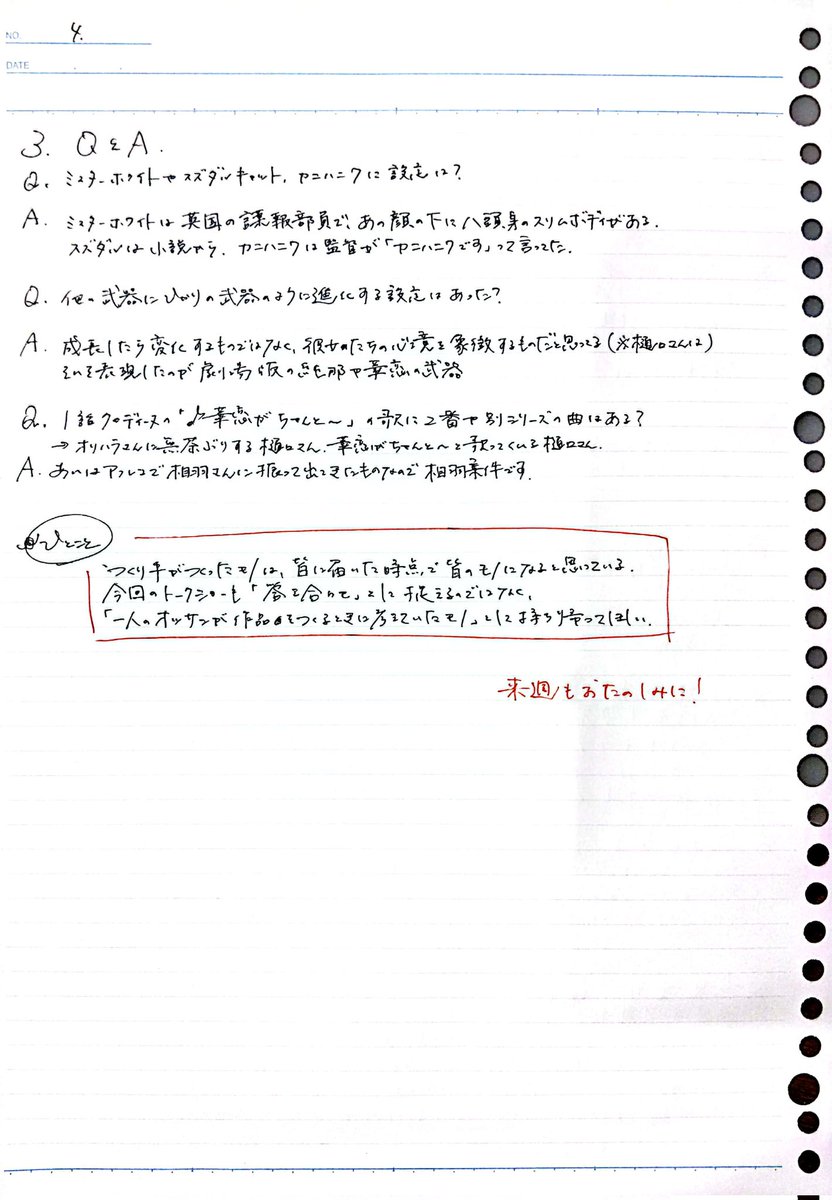 NO. 4.
DATE
3. Q&A.
Q. ミスターホワイトやスズダルキャット、カニハニワに設定は?
A. ミスターホワイトは英国の諜報部員で、あの顔の下に八頭身のスリムボディがある。
スズダルは小説から、カニハニワは監督が「カニハニワです」って言ってた。
Q. 他の武器にひかりの武器のように進化する設定はあった?
A. 成長したら変化するものではなく、彼女たちの心境を象徴するものだと思ってる(※樋口さんは)
それを表現したのが劇場版の真矢や華恋の武器
Q. 1話クロディーヌの「♪華恋がちゃんと〜」の歌に2番や別シリーズの曲はある?
→オリハラさんに無茶ぶりする樋口さん。華恋がちゃんと〜と歌ってくれる樋口さん。
A. あいはアフレコで相羽さんに振って出てきたものなので相羽案件です。
ひとこと
つくり手がつくったモノは、皆に届いた時点で皆のモノになると思っている。
今回のトークショーも「答え合わせ」として捉えるのではなく、
「一人のオッサンが作品をつくるときに考えていたモノ」として持ち帰ってほしい。
来週もおたのしみに!